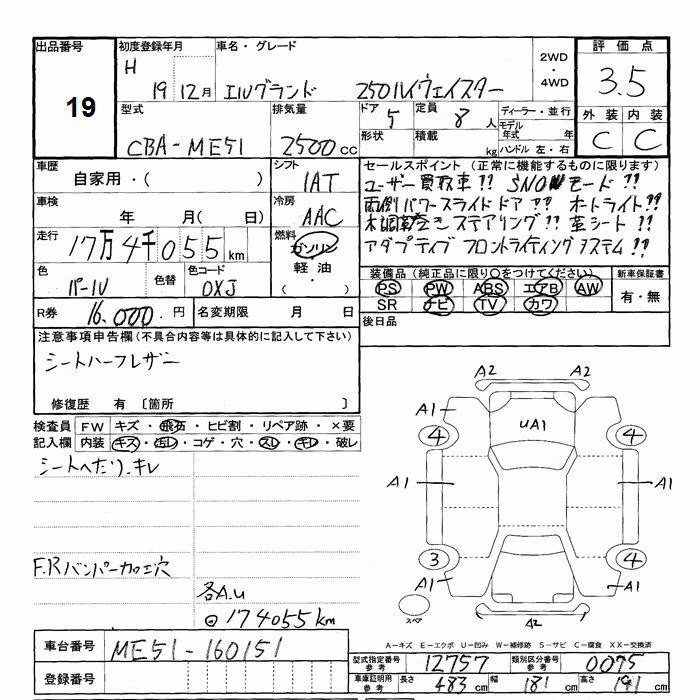 出品番号 初度登録年月 車名・グレード 2WD・4WD 評価点
19 H 19 12月 エルグランド 250ハイウェイスター 3.5
型式 排気量 ドア 5 定員 8人 ディーラー・並行 外装 内装
CBA-ME51 2500cc 形状 積載 kg モデル年式 年 ハンドル 左・右 C C
車歴 シフト セールスポイント(正常に機能するものに限ります)
自家用・( ) IAT ユーザー買取車!! SNOWモード!!
車検 冷房 両側パワースライドドア!! オートライト!!
年 月( 日) AAC 木調革巻きステアリング!! 革シート!!
走行 17万4千055km 燃料 ガソリン アダプティブフロントライティングシステム!!
軽油・( )
色 色替 色コード 装備品(純正品に限り○をつけてください) 新車保証書
パール OXJ PS PW ABS エアB AW 有・無
R券 16,000.円 名変期限 月 日 SR ナビ TV カワ
後日品
注意事項申告欄(不具合内容等は具体的に記入して下さい)
シートハーフレザー
修復歴 有 〔箇所 〕
検査員 FW キズ・飛石・ヒビ割・リペア跡・×要
記入欄 内装 キズ・汚レ・コゲ・穴・スレ・キレ・破レ
シートへたり.キレ
F.Rバンパー加工穴
各A.u
174055km
A2 A2
A1 UA1
4 4
A1 A1
3 4
A1 A1
スペア A2
車台番号 ME51-160151
登録番号
A-キズ E-エクボ U-凹み W-補修跡 S-サビ C-腐食 XX-交換済
型式指定番号 参考 12757 類別区分番号 参考 0075
車庫証明用 参考 長さ 483cm 幅 181cm 高さ 191cm